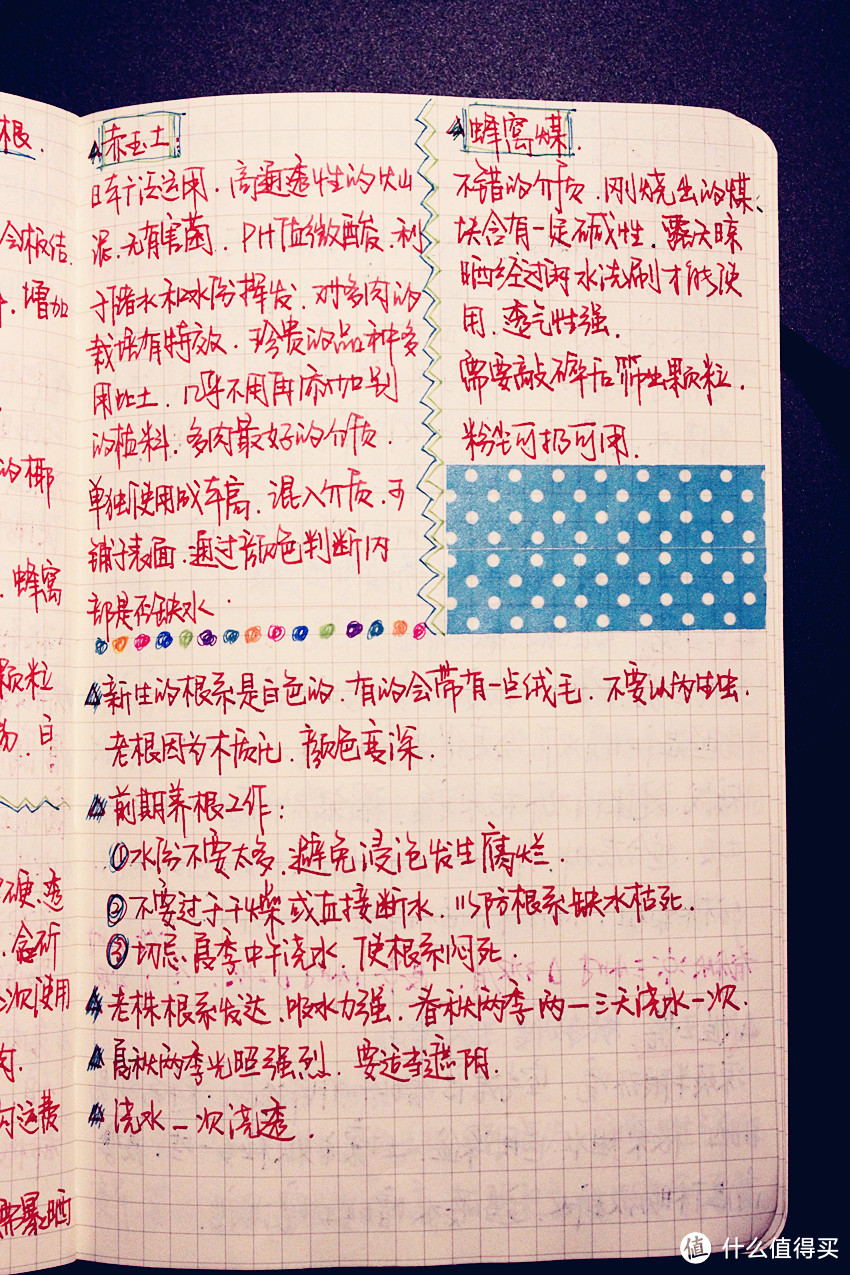 根.
会板结.
增加
的椰
蜂窝
颗粒
白
硬.透
次使用
肉.
运费
需暴晒
赤玉土:
日本广泛运用.高通透性的火山
泥.无有害菌.PH值微酸.利
于储水和水份挥发.对多肉的
栽培有特效.珍贵的品种多
用此土.几乎不用再添加别
的植料.多肉最好的介质.
单独使用成本高.混入介质.可
铺于表面.通过颜色判断内
部是否缺水.
蜂窝煤.
不错的介质.刚烧出的煤
块含有一定碱性.露天晾
晒经过雨水洗刷才能使
用.透气性强.
需要敲碎后筛出颗粒.
粉尘可扔可用.
新生的根系是白色的.有的会带有一点绒毛.不要以为生虫.
老根因为木质化.颜色变深.
前期养根工作:
①水份不要太多.避免浸泡发生腐烂.
②不要过于干燥或直接断水.以防根系缺水枯死.
③切忌夏季中午浇水.使根系闷死.
老株根系发达.吸水力强.春秋两季两一三天浇水一次.
夏秋两季光照强烈.要适当遮阴.
浇水一次浇透.
值 什么值得买